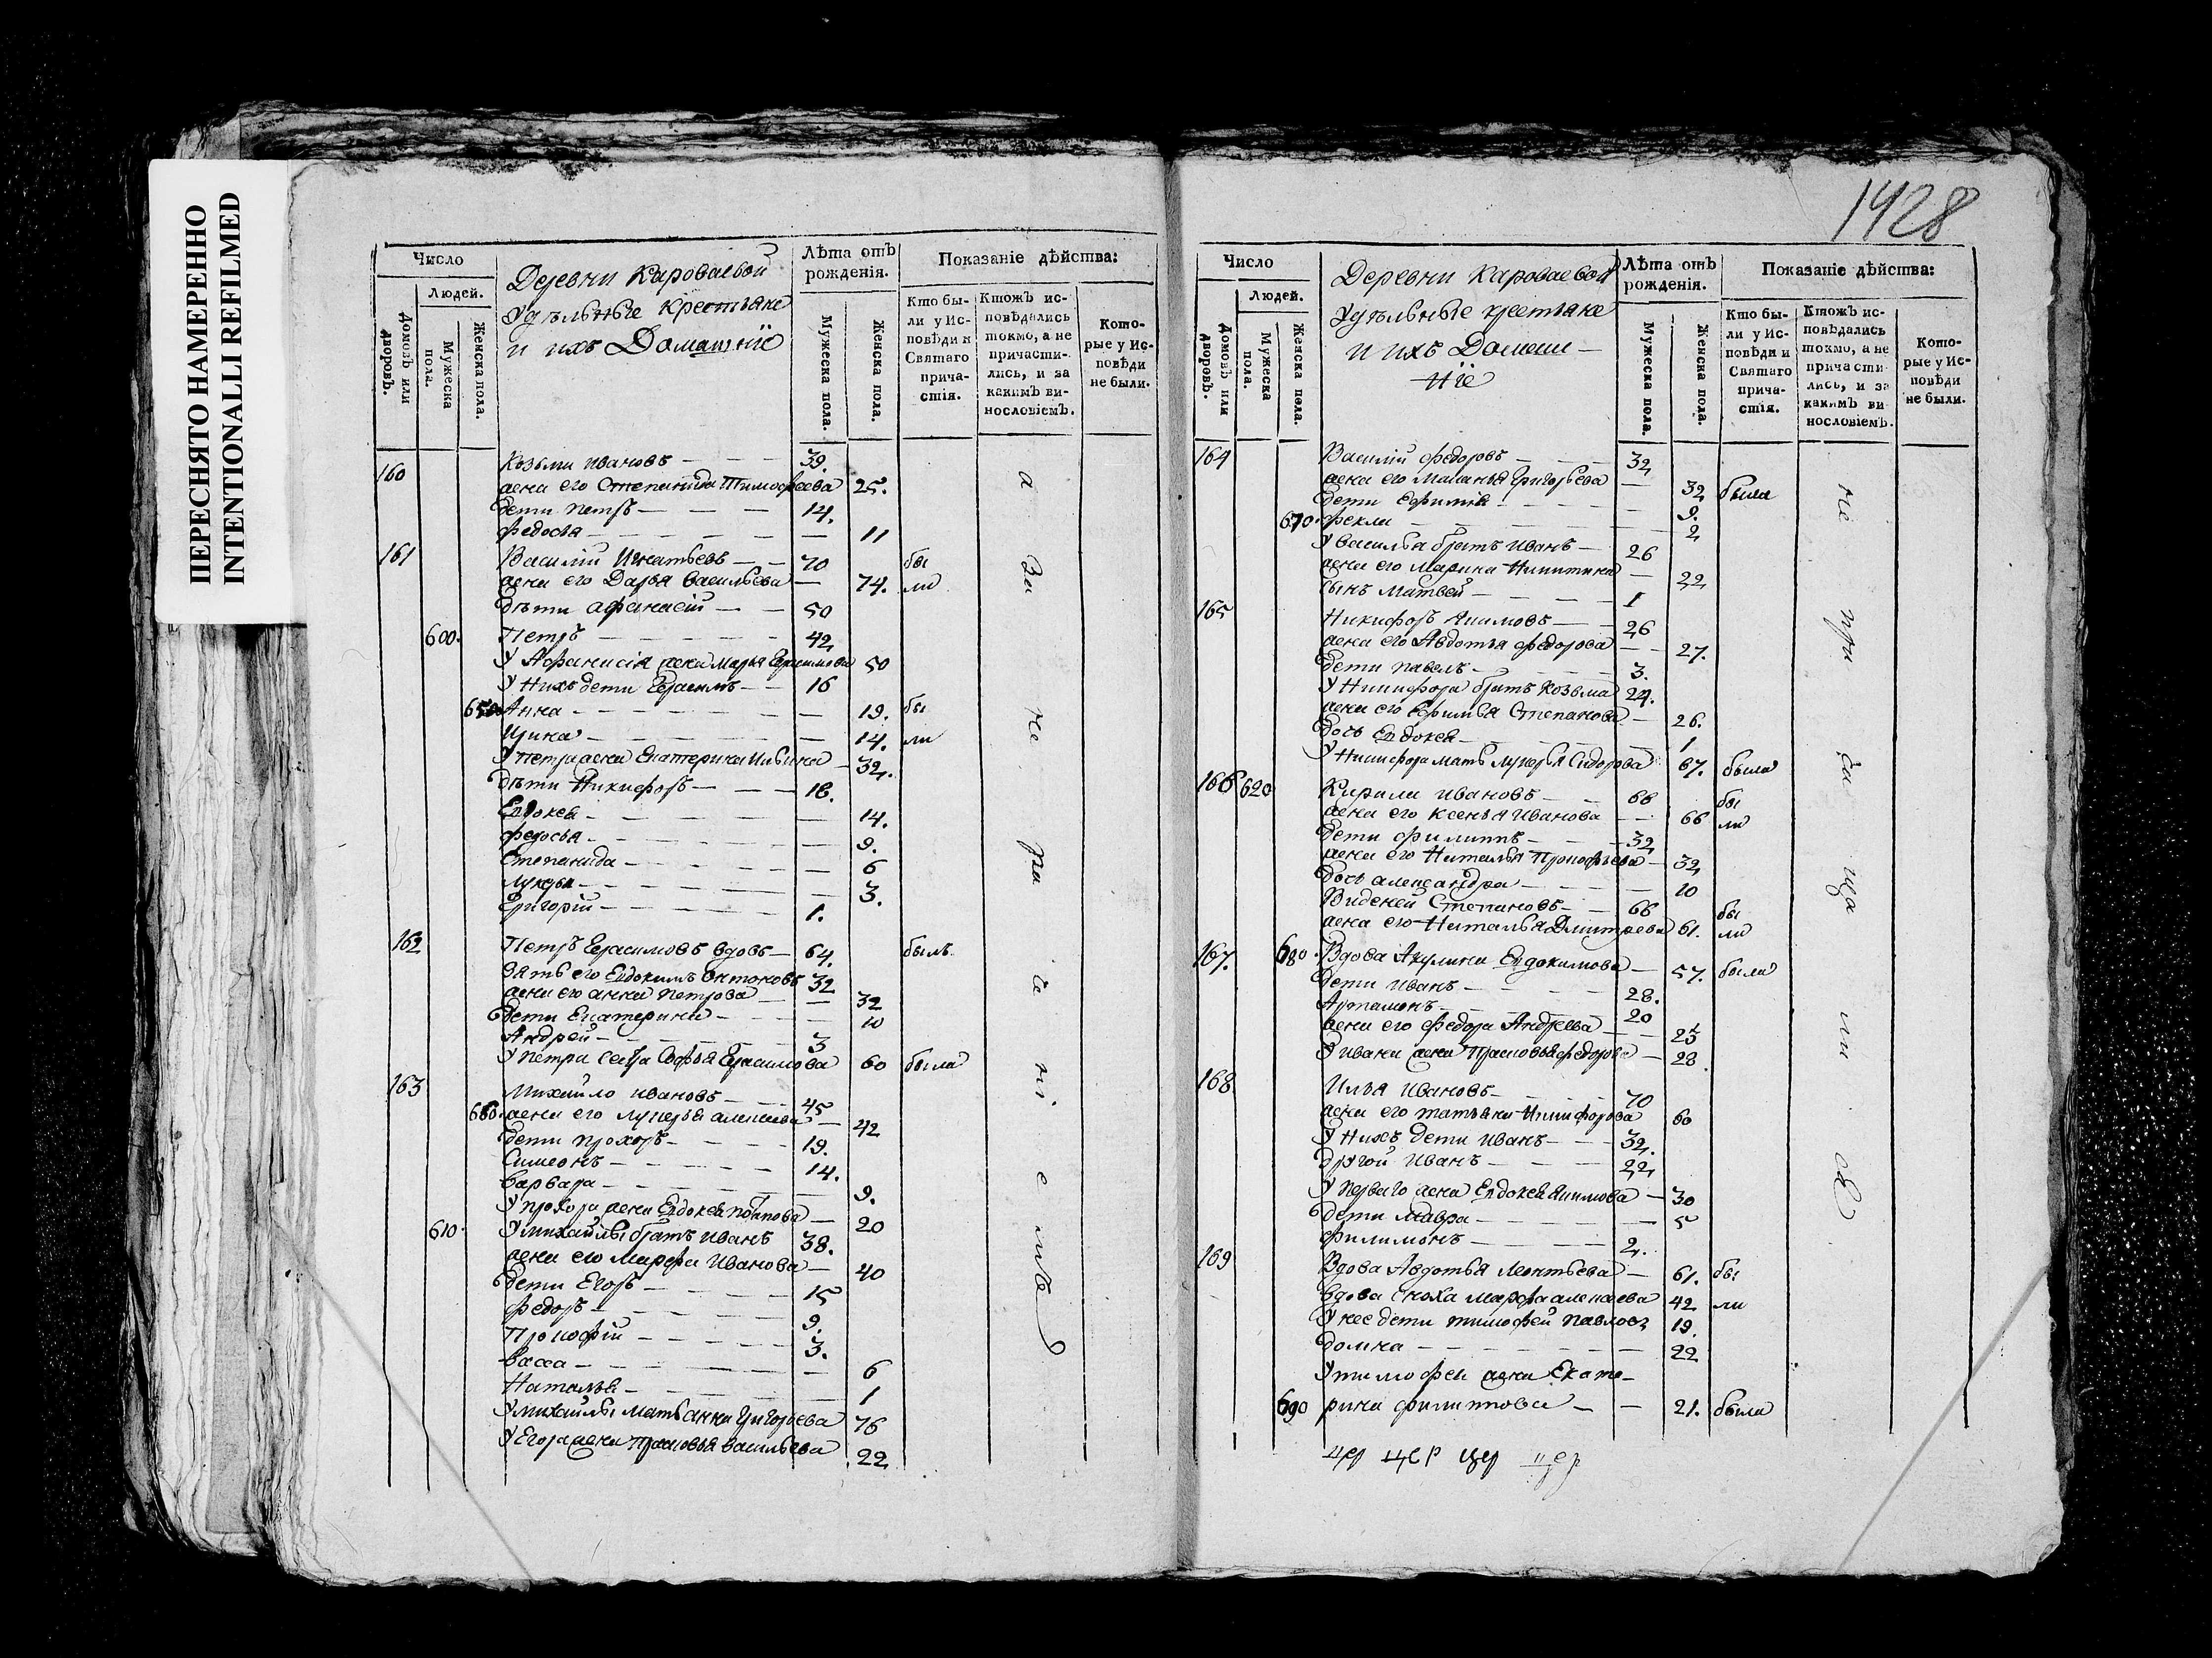 ПЕРЕСНЯТО НАМЕРЕННО
INTENTIONALLI REFILMED
Число
Людей.
Домовъ или дворовъ.
Мужеска пола.
Женска пола.
Деревни Кароваевой
Удѣльные крестьяне
и ихъ Домашніе
Лѣта отъ рожденія.
Мужеска пола.
Женска пола.
Показаніе дѣйства:
Кто бы-
ли у Ис-
повѣди и
Святаго
прича-
стія.
Ктожъ ис-
повѣдались
токмо, а не
причасти-
лись, и за
какимъ ви-
нословіемъ.
Кото-
рые у Ис-
повѣди
не были.
160 Козьма Ивановъ 39.
жена его Степанида Тимофеева 25.
дети Петръ 14.
Федосья 11
161 Василій Игнатьевъ 70 бы
жена его Дарья Васильева 74. ли
дѣти Афанасій 50
600. Петръ 42
У Афанасія жена Марья Герасимова 50
У Нихъ дети Герасимъ 16
650 Анна 19. бы
Ирина 14. ли
У Петра жена Екатерина Ильина 32.
дѣти Никифоръ 16.
Евдокея 14.
Федосья 9.
Степанида 6
Лукерья 3.
Григорій 1.
162 Петръ Герасимовъ вдовъ 64. былъ
Зять его Евдокимъ Антоновъ 32
жена его Анна Петрова 32
дети Екатерина 10
Андрей 3
У Петра сестра Софья Герасимова 60 была
163 Михайло Ивановъ 45
660. жена его Лукерья Алексеева 42
дети Прохоръ 19.
Симеонъ 14.
Варвара 9.
У Прохора жена Евдокея Потапова 20
610. У Михайлы братъ Иванъ 38.
жена его Марфа Иванова 40
дети Егоръ 15
Федоръ 9.
Прокофій 3.
Васса 6
Наталья 1
У Михайлы мать Анна Григорьева 76
У Егора жена Прасковья Васильева 22
1428
Число
Людей.
Домовъ или дворовъ.
Мужеска пола.
Женска пола.
Деревни Кароваевой
Удѣльные крестьяне
и ихъ Домаш-
ніе
Лѣта отъ рожденія.
Мужеска пола.
Женска пола.
Показаніе дѣйства:
Кто бы-
ли у Ис-
повѣди и
Святаго
прича-
стія.
Ктожъ ис-
повѣдались
токмо, а не
причасти-
лись, и за
какимъ ви-
нословіемъ.
Кото-
рые у Ис-
повѣди
не были.
164 Василій Федоровъ 32
жена его Маланья Григорьева 32 была
дети Ефимія 9.
670. Фекла 2
У Василья братъ Иванъ 26
жена его Марина Никитина 22
сынъ Матвей 1
165 Никифоръ Якимовъ 26
жена его Авдотья Федорова 27.
дети Павелъ 3.
У Никифора братъ Козьма 24.
жена его Ефимья Степанова 26.
дочь Евдокея 1
У Никифора мать Лукерья Сидорова 67. была
166 620 Кирила Ивановъ 66 бы
жена его Ксенья Иванова 66 ли
дети Филиппъ 32
жена его Наталья Прокофьева 32
дочь Александра 10
Степановъ 66 бы
жена его Наталья Дмитриева 61. ли
167. 680. Вдова Акулина Евдокимова 57. была
дети Иванъ 28.
Артамонъ 20
жена его Федора Андреева 25
У Ивана жена Прасковья Федорова 28
168 Илья Ивановъ 70
жена его Татьяна Никифорова 60
У Нихъ дети Иванъ 32.
другой Иванъ 22
У перваго жена Евдокея Якимова 30
дети Мавра 5
Филимонъ 2.
169 Вдова Авдотья Леонтьева 61. бы
вдова сноха Марфа Алексеева 42 ли
У нее дети Тимофей Павловъ 19.
Домна 22
У Тимофея жена Екате-
690 рина Филиппова 21. была
цер цер цер цер